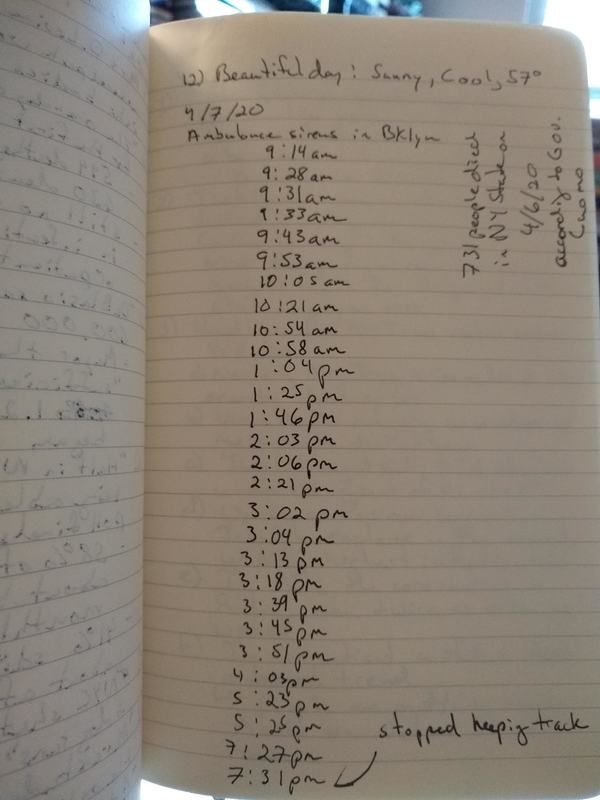 12) Beautiful day: Sunny, Cool, 57°
4/7/20
Ambulance sirens in Bklyn
9:14am
9:28am
9:31am
9:33am
9:43am
9:53am
10:05am
10:21am
10:54am
10:58am
1:04pm
1:25pm
1:46pm
2:03pm
2:06pm
2:21pm
3:02pm
3:04pm
3:13pm
3:18pm
3:39pm
3:45pm
3:51pm
4:03pm
5:23pm
5:25pm
7:27pm
7:31pm
stopped keeping track
731 people died
in NY State on
4/6/20
according to Gov.
Cuomo